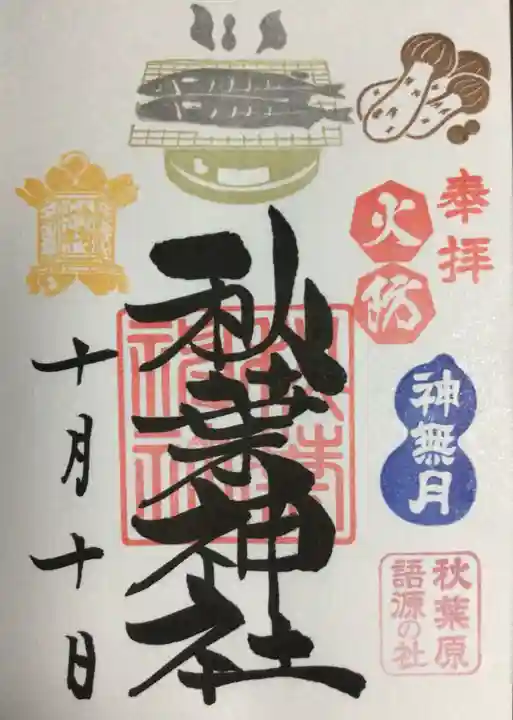 奉拝
火防
神無月
秋葉原
語源の社
秋葉神社
十月十日